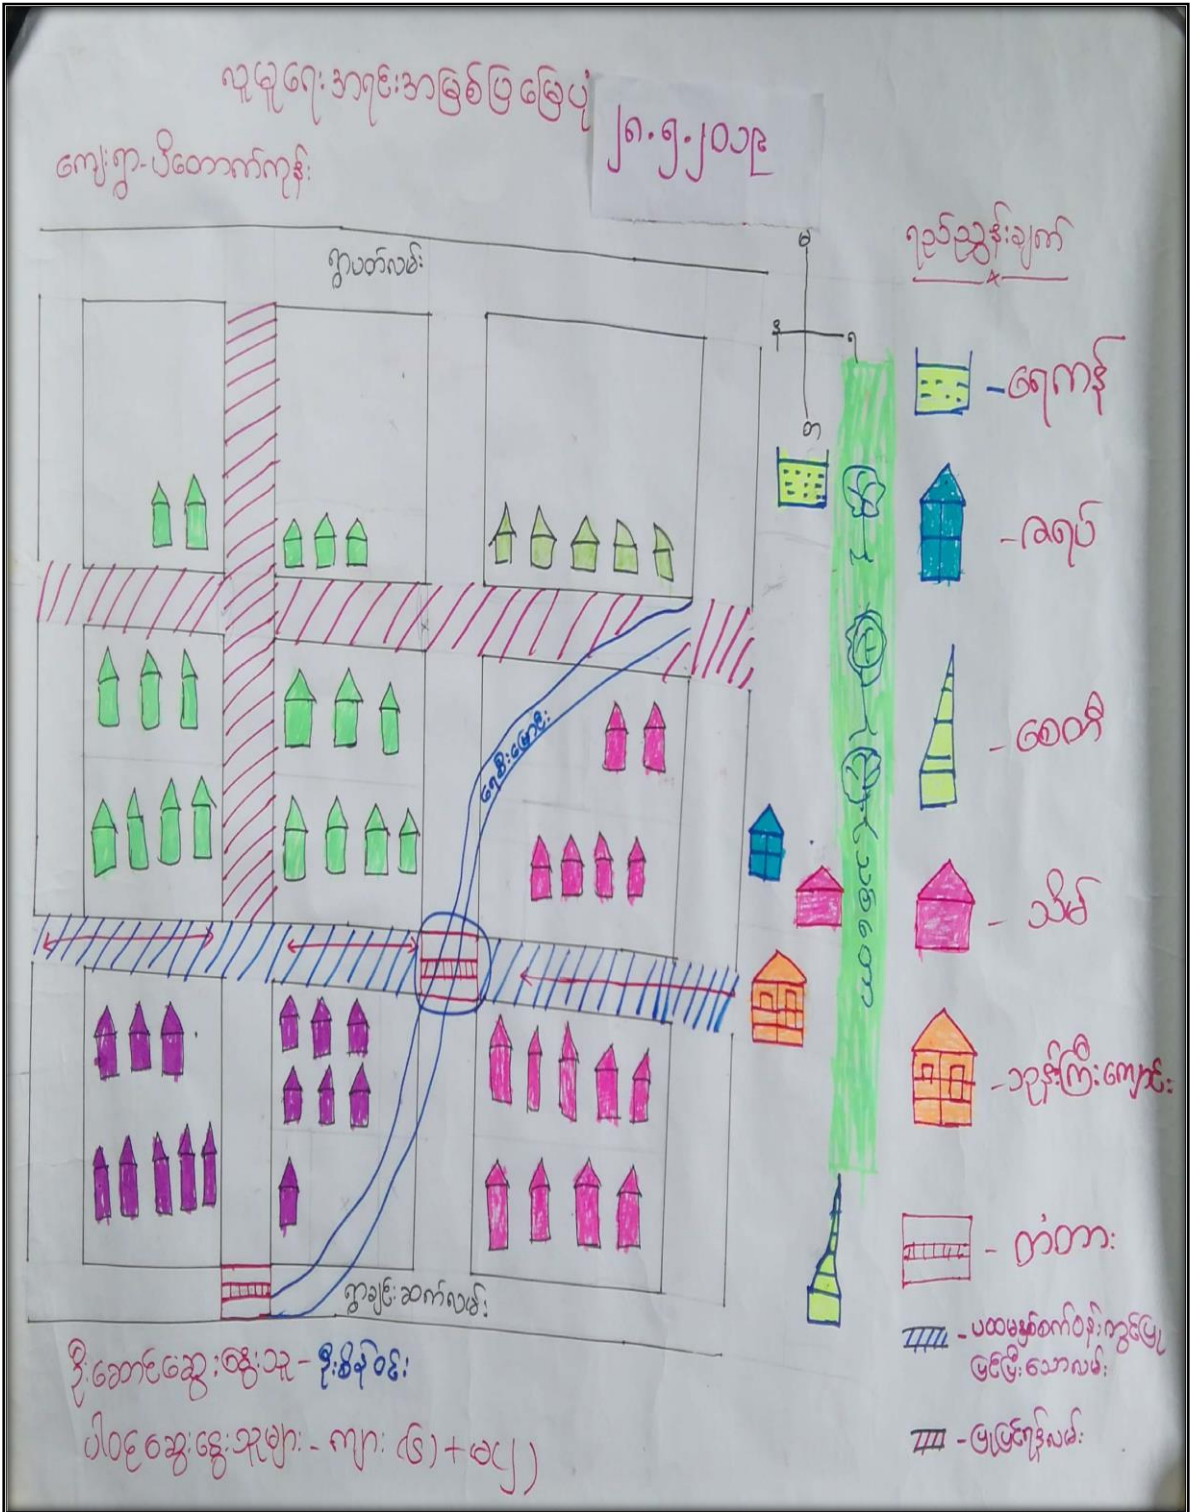 လူမှုရေးအရင်းအမြစ်ပြမြေပုံ
၂၈.၅.၂၀၁၉
ကျေးရွာ-ပိတောက်ကုန်း
ရွာပတ်လမ်း
မ
န
ရ
တ
ရည်ညွှန်းချက်
-ရေကန်
-ဇရပ်
-စေတီ
- သိမ်
-ဘုန်းကြီးကျောင်း
- တံတား
-ပထမနှစ်စက်ဝန်းတွင်ပြု
ပြင်ပြီးသောလမ်း
-ပြုပြင်ရန်လမ်း
ရေစီးမြောင်း
ရွာချင်းဆက်လမ်း
ဦးဆောင်ဆွေးနွေးသူ-ဦးစိန်ဝင်း
ပါဝင်ဆွေးနွေးသူများ - ကျား (၆)+မ(၂)